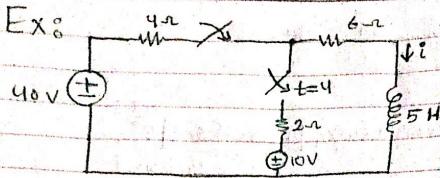 Ex:
4Ω
6Ω
↓i
40V
t=4
2Ω
5H
10V